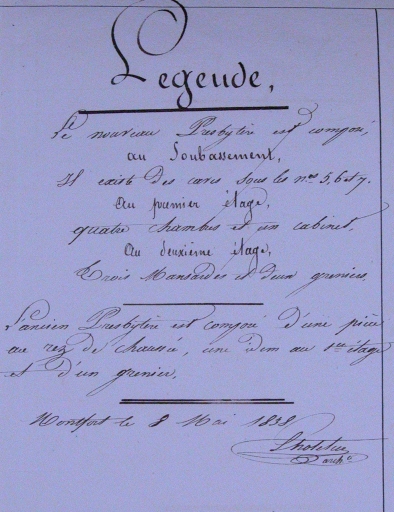 Légende,
Le nouveau Presbytère est composé,
au Soubassement,
Il existe des caves sous les nos 5, 6 et 7.
Au premier étage,
quatre chambres et un cabinet,
Au deuxième étage,
Trois Mansardes et deux greniers.
L'ancien Presbytère est composé d'une pièce
au rez de chaussée, une idem au 1er étage
et d'un grenier.
Montfort le 8 Mai 1838
arch.e